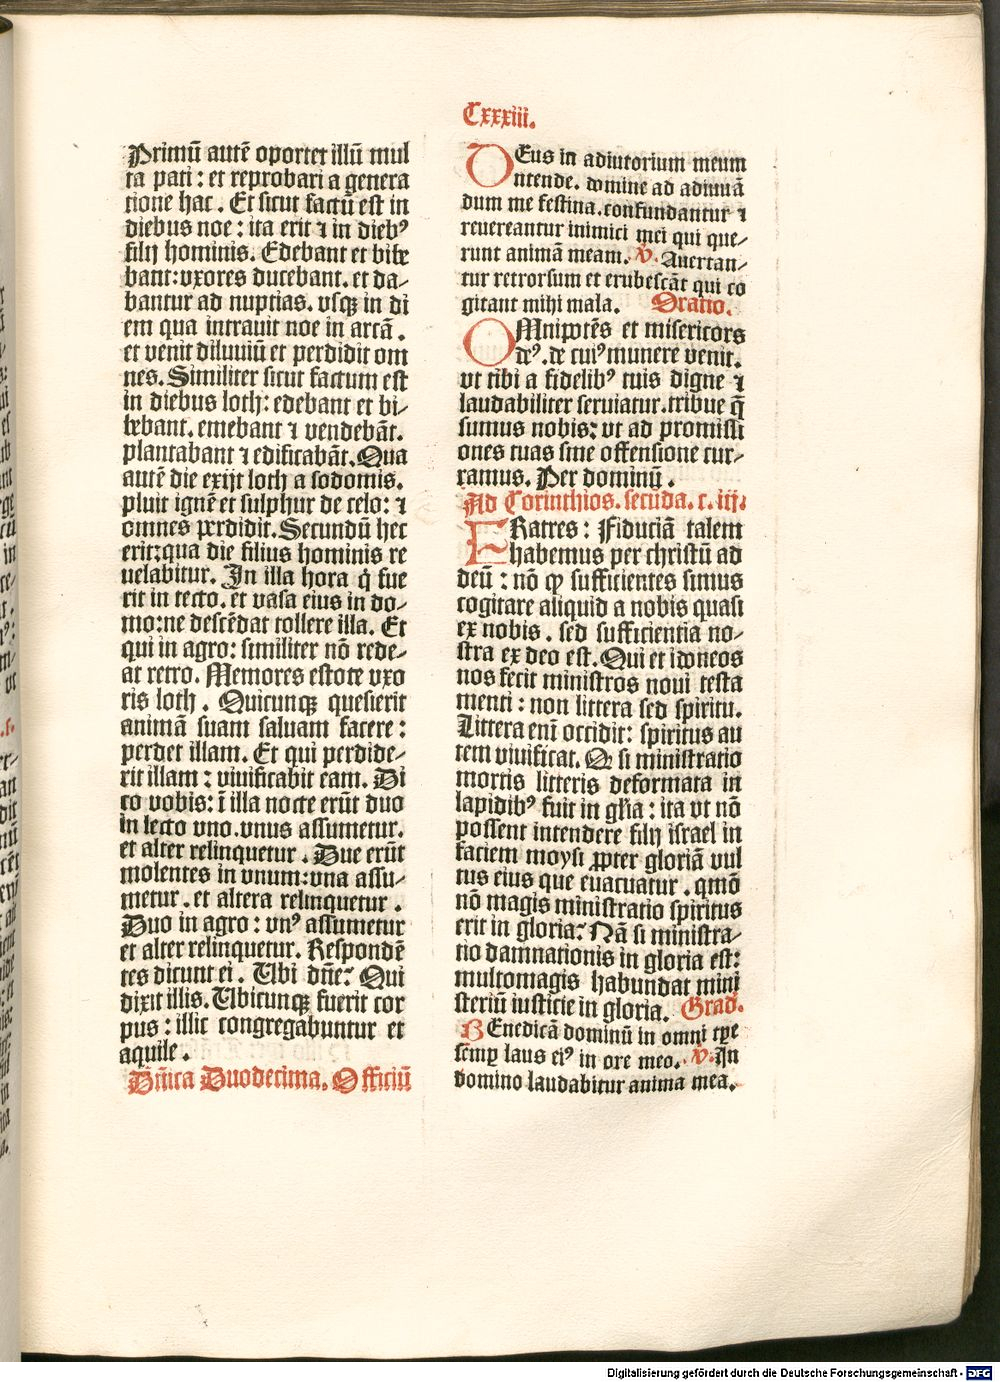 Cxxxiii.
Primū autē oportet illū mul
ta pati : et reprobari a genera
tione hac . Et sicut factū est in
diebus noe : ita erit ⁊ in diebꝰ
filij hominis. Edebant et bibe
bant: vxores ducebant. et da⸗
bantur ad nuptias. vsqꝫ in di
em qua intrauit noe in arcā .
et venit diluuiū et perdidit om
nes. Similiter sicut factum est
in diebus loth: edebant et bi⸗
bebant. emebant ⁊ vendebāt.
plantabant ⁊ edificabāt. Qua
autē die exijt loth a sodomis.
pluit ignē et sulphur de celo: ⁊
omnes perdidit. Secundū hec
erit: qua die filius hominis re
uelabitur. In illa hora q̇ fue
rit in tecto. et vasa eius in do⸗
mo: ne descēdat tollere illa. Et
qui in agro: similiter nō rede⸗
at retro. Memores estote vxo
ris loth . Quicunqꝫ quesierit
animā suam saluam facere :
perdet illam. Et qui perdide⸗
rit illam : viuificabit eam. Di
co vobis: ī illa nocte erūt duo
in lecto vno. vnus assumetur.
et alter relinquetur . Due erūt
molentes in vnum: vna assu⸗
metur . et altera relinquetur .
Duo in agro : vnꝰ assumetur
et alter relinquetur. Respondē
tes dicunt ei . Ubi dn̄e? Qui
dixit illis. Ubicunqꝫ fuerit cor
pus : illic congregabuntur et
aquile .
Dn̄ica Duodecima. Officiū
DEus in adiutorium meum
intende. domine ad adiuuā
dum me festina. confundantur ⁊
reuereantur inimici mei qui que⸗
runt animā meam. v̇. Auertan⸗
tur retrorsum et erubescāt qui co
gitant mihi mala. Oratio.
OMnipotēs et misericors
deꝰ. de cuiꝰ munere venit.
vt tibi a fidelibꝰ tuis digne ⁊
laudabiliter seruiatur. tribue q̄
sumus nobis: vt ad promissi
ones tuas sine offensione cur⸗
ramus. Per dominū .
Ad Corinthios. secūda. c. iij.
FRatres : Fiduciā talem
habemus per christū ad
deū : nō ꝙ sufficientes simus
cogitare aliquid a nobis quasi
ex nobis . sed sufficientia no⸗
stra ex deo est. Qui et idoneos
nos fecit ministros noui testa
menti : non littera sed spiritu.
Littera enī occidit: spiritus au
tem viuificat. Qꝫ si ministratio
mortis litteris deformata in
lapidibꝰ fuit in gl̄ia : ita vt nō
possent intendere filij israel in
faciem moysi ꝓpter gloriā vul
tus eius que euacuatur . qmō
nō magis ministratio spiritus
erit in gloria? Nā si ministra⸗
tio damnationis in gloria est:
multomagis habundat mini
steriū iusticie in gloria. Grad.
BEnedicā dominū in omni tpe
semꝑ laus eiꝰ in ore meo. v̇. In
domino laudabitur anima mea.
Digitalisierung gefördert durch die Deutsche Forschungsgemeinschaft - DFG